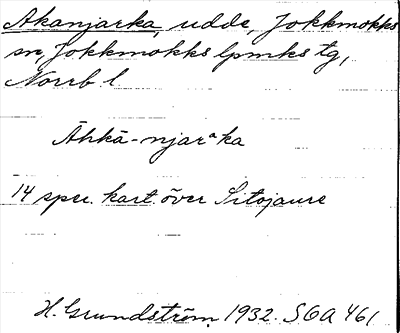 Akanjarka, udde, Jokkmokks
sn, Jokkmokks lpmks tg,
Norrb l
Āhkā-njarᵃka
14 spec. kart. över Sitojaure
H. Grundström. 1932. SOA 461